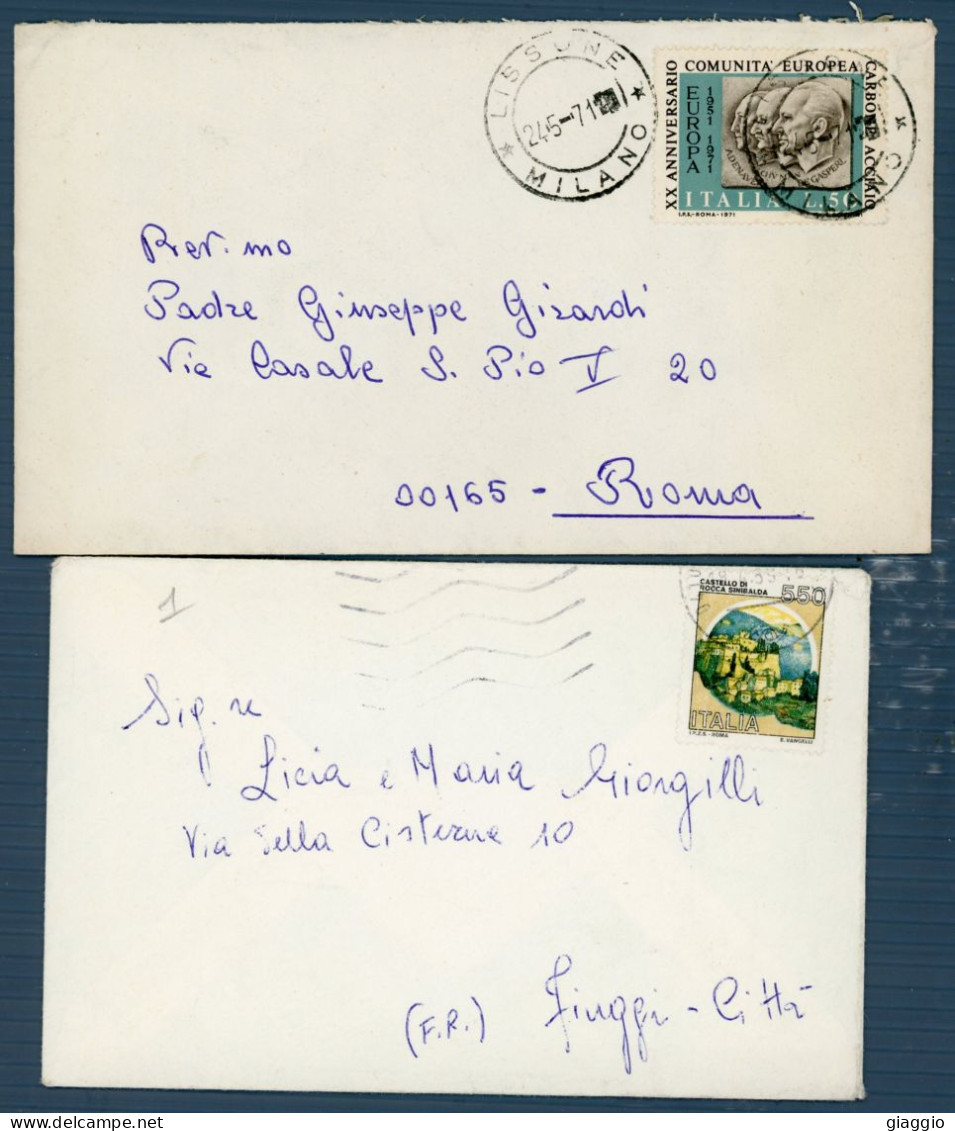 ★ LISSONE ★
MILANO
24-5-71
XX ANNIVERSARIO COMUNITA' EUROPEA CARBONE ACCIAIO
EUROPA
1951 1971
ADENAUER SCHUMAN DE GASPERI
ITALIA L.50
I.P.S.-ROMA-1971
Rev.mo
Padre Giuseppe Girardi
Via Casale S. Pio V 20
00165 - Roma
1
CASTELLO DI
ROCCA SINIBALDA
550
ITALIA
I.P.Z.S.-ROMA
E. VANGELLI
Sig.re
Licia e Maria Giorgilli
Via della Cisterne 10
(F.R.) Fiuggi - Città
delcampe.net
giaggio